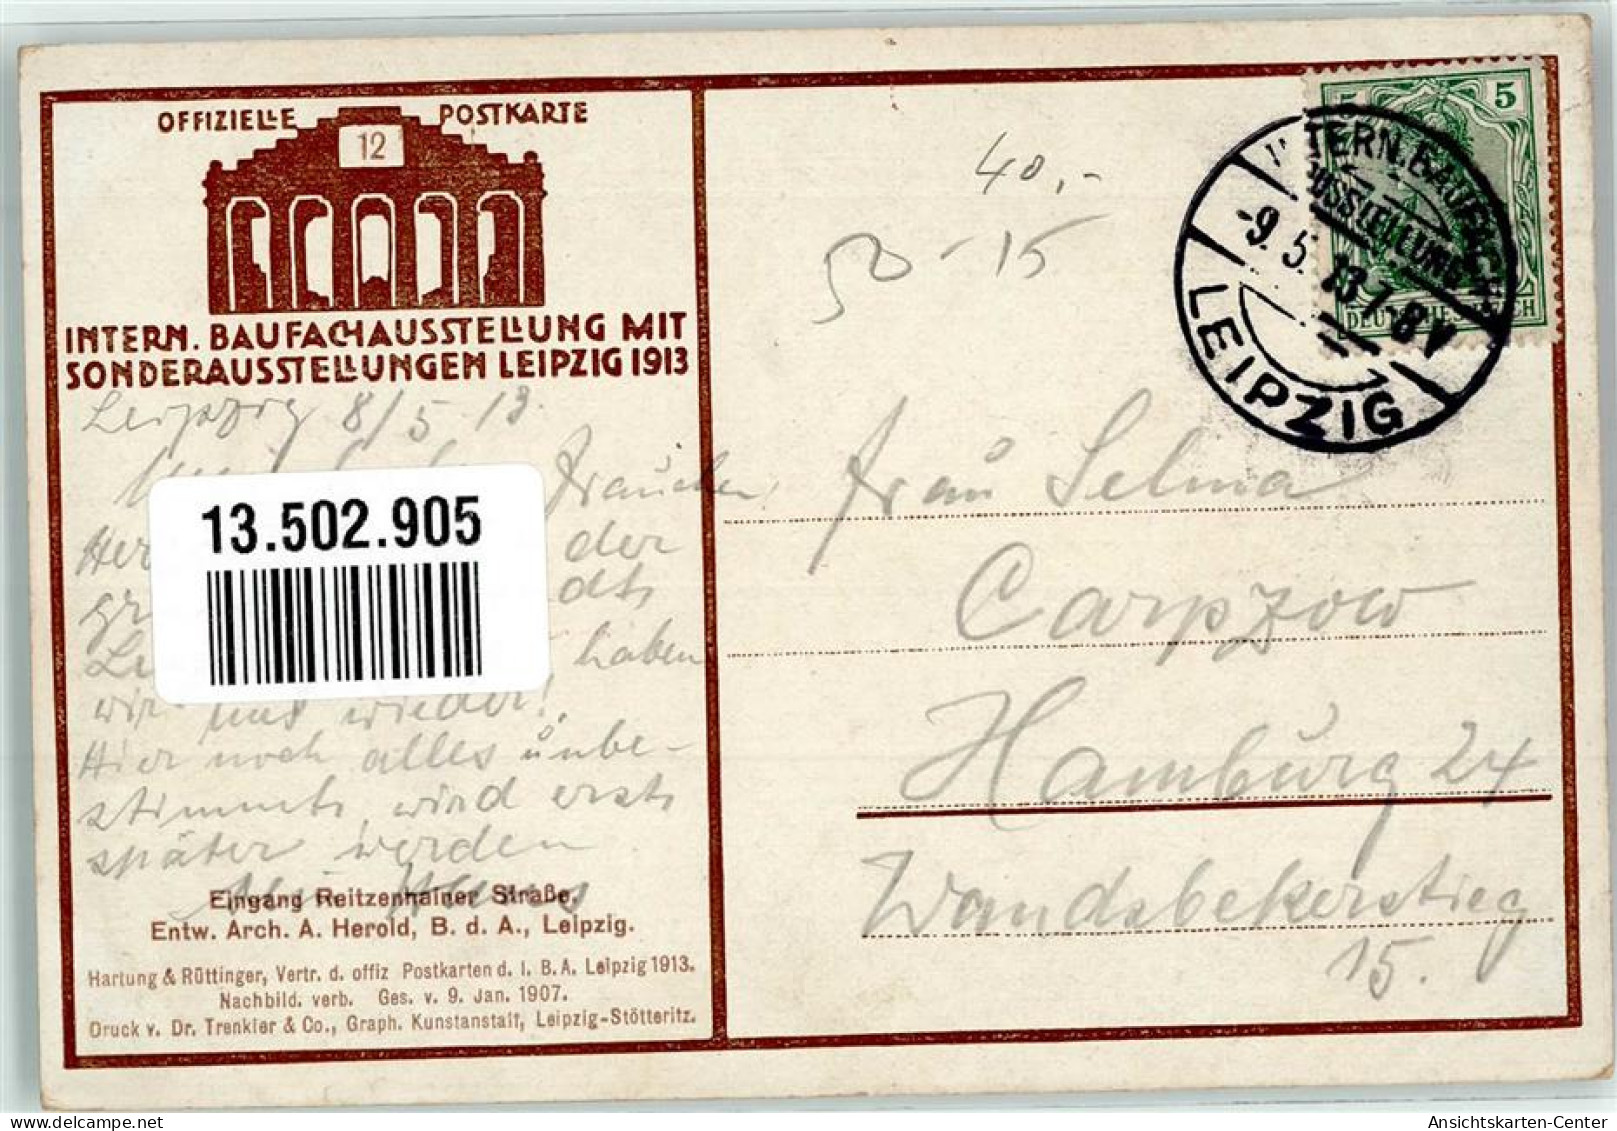 OFFIZIELLE POSTKARTE
12
INTERN. BAUFACHAUSSTELLUNG MIT
SONDERAUSSTELLUNGEN LEIPZIG 1913
Leipzig 8/5 13.
Frauchen
der
haben
wir uns wieder!
Hier noch alles unbe-
stimmt, wird erst
später werden
13.502.905
Eingang Reitzenhainer Straße.
Entw. Arch. A. Herold, B. d. A., Leipzig.
Hartung & Rüttinger, Vertr. d. offiz Postkarten d. I. B. A. Leipzig 1913.
Nachbild. verb. Ges. v. 9. Jan. 1907.
Druck v. Dr. Trenkler & Co., Graph. Kunstanstalt, Leipzig-Stötteritz.
40,-
50 - 15
5 5
DEUTSCHES REICH
INTERN. BAUFACH-
AUSSTELLUNG
-9.5.13.7-8V
LEIPZIG
Frau Selma
Carpzow
Hamburg 24
Wandsbekerstieg
15.
Ansichtskarten-Center